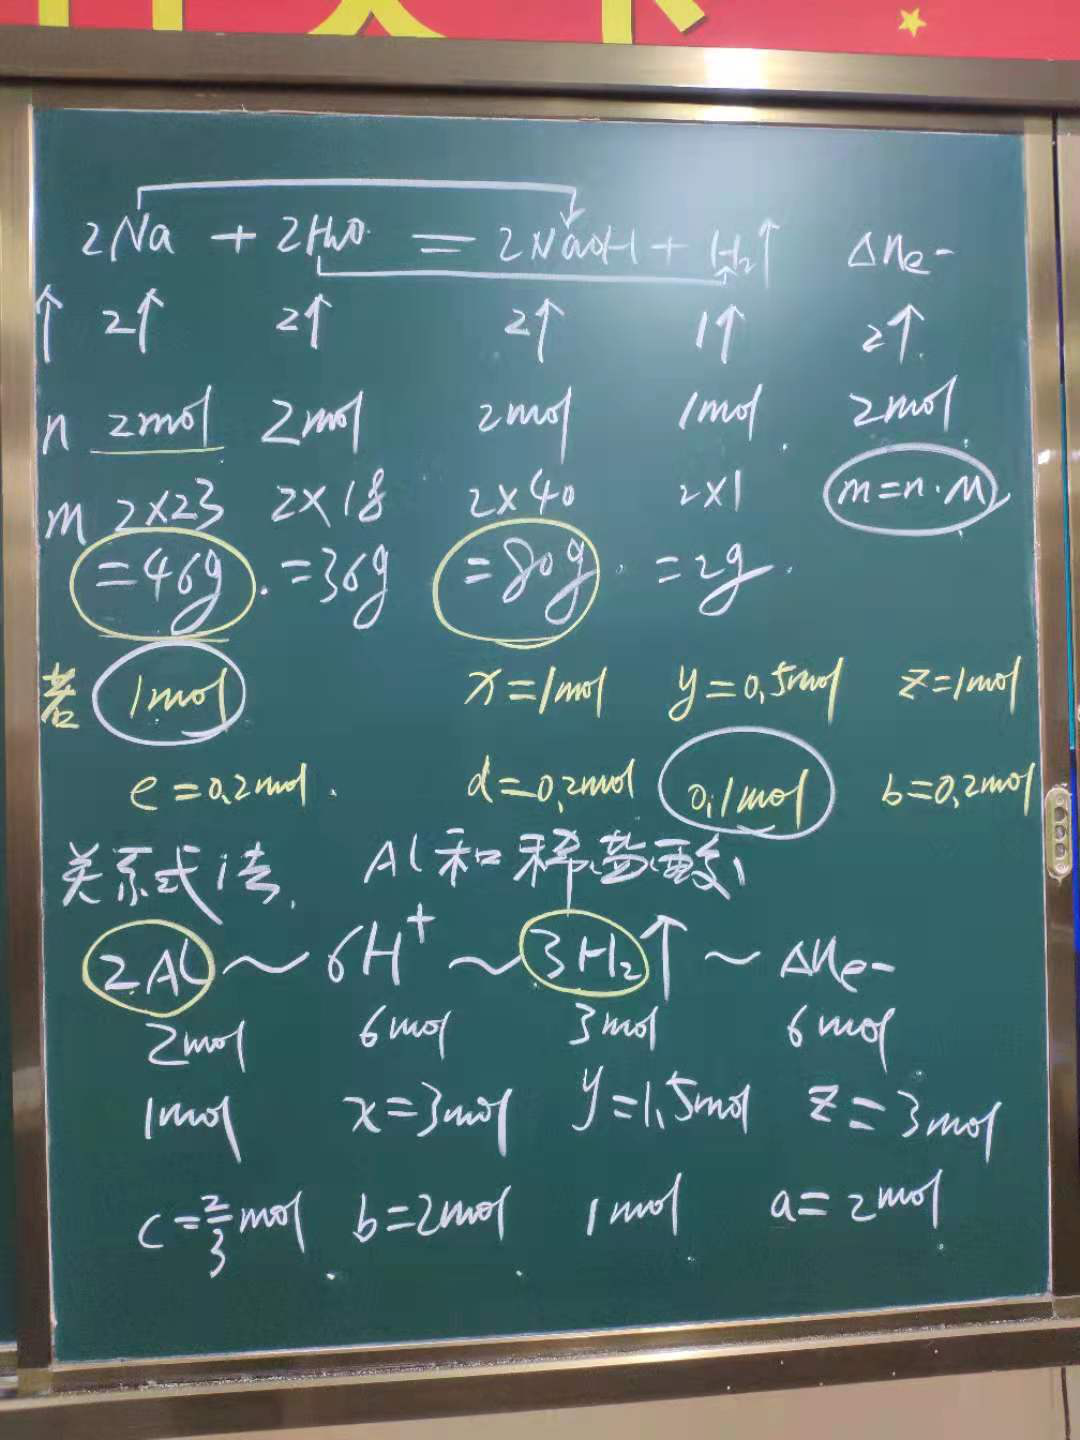 2Na + 2H₂O = 2NaOH + H₂↑ Δne-
↑ 2↑ 2↑ 2↑ 1↑ 2↑.
n 2mol 2mol 2mol 1mol. 2mol
m 2×23 2×18 2×40 2×1 m=n·M
=46g. =36g =80g. =2g.
若 1mol x=1mol y=0.5mol z=1mol
e=0.2mol. d=0.2mol 0.1mol b=0.2mol
关系式法. Al和稀盐酸
2Al ~ 6H⁺ ~ 3H₂↑ ~ Δne-
2mol 6mol 3mol 6mol
1mol x=3mol y=1.5mol z=3mol
c=2/3mol b=2mol 1mol a=2mol